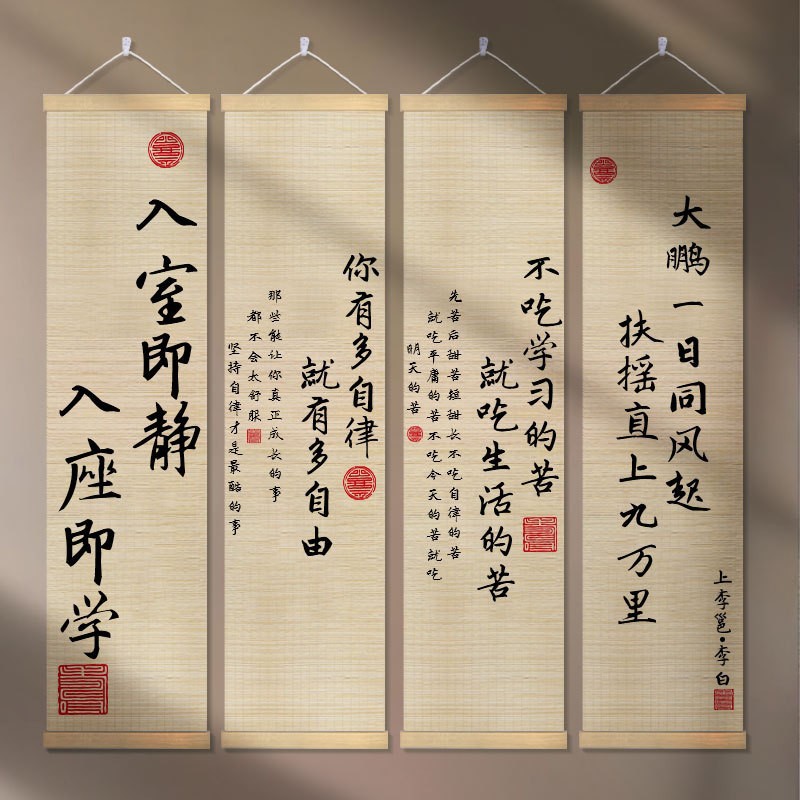 入室即静
入座即学
你有多自律
就有多自由
那些能让你真正成长的事
都不会太舒服
坚持自律才是最酷的事
不吃学习的苦
就吃生活的苦
先苦后甜苦短甜长不吃自律的苦
就吃平庸的苦不吃今天的苦就吃
明天的苦
大鹏一日同风起
扶摇直上九万里
上李邕·李白